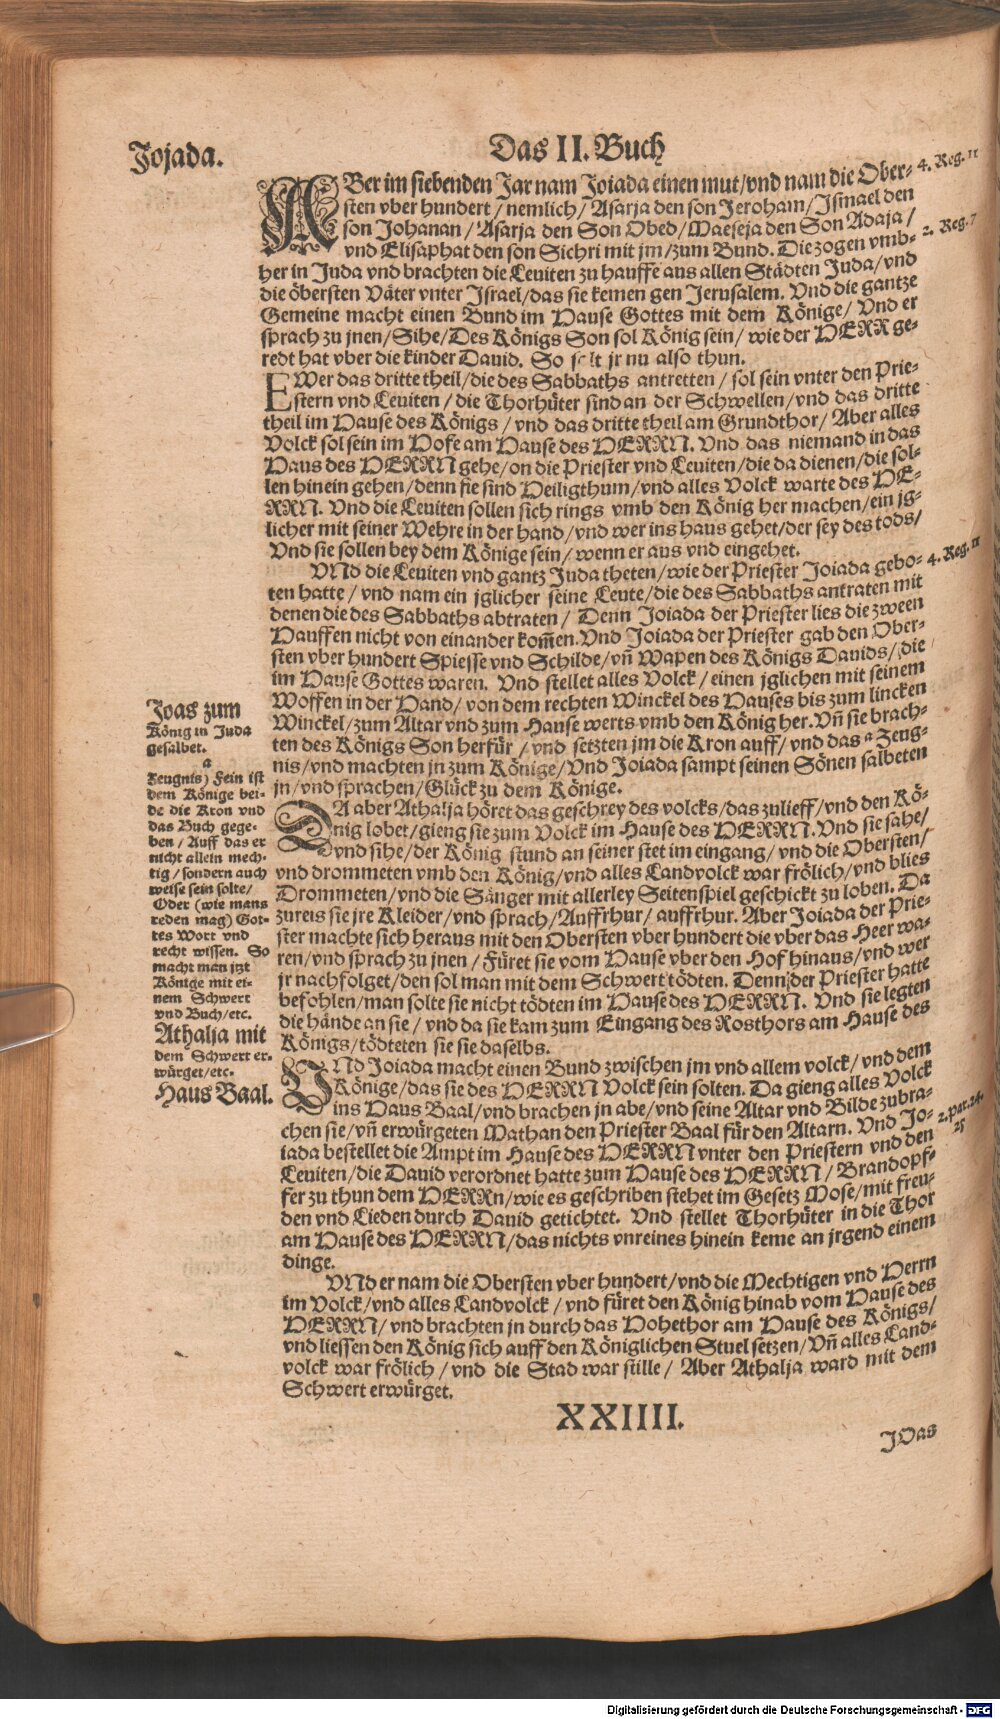 Jojada.
Das II. Buch
ABer im siebenden Jar nam Joiada einen mut/vnd nam die Ober-
4. Reg. 11
sten vber hundert/nemlich/Asarja den son Jeroham/Ismael den
son Johanan/Asarja den Son Obed/Maeseja den Son Adaja/
2. Reg. 7
vnd Elisaphat den son Sichri mit jm/zum Bund. Die zogen vmb-
her in Juda vnd brachten die Leuiten zu hauffe aus allen Städten Juda/vnd
die öbersten Väter vnter Israel/das sie kemen gen Jerusalem. Vnd die gantze
Gemeine macht einen Bund im Hause Gottes mit dem Könige/Vnd er
sprach zu jnen/Sihe/Des Königs Son sol König sein/wie der HERR ge-
redt hat vber die kinder Dauid. So solt jr nu also thun.
EWer das dritte theil/die des Sabbaths antretten/sol sein vnter den Prie-
stern vnd Leuiten/die Thorhüter sind an der Schwellen/vnd das dritte
theil im Hause des Königs/vnd das dritte theil am Grundthor/Aber alles
Volck sol sein im Hofe am Hause des HERRN. Vnd das niemand in das
Haus des HERRN gehe/on die Priester vnd Leuiten/die da dienen/die sol-
len hinein gehen/denn sie sind Heiligthum/vnd alles Volck warte des HE-
RRN. Vnd die Leuiten sollen sich rings vmb den König her machen/ein jg-
licher mit seiner Wehre in der hand/vnd wer ins haus gehet/der sey des tods/
Vnd sie sollen bey dem Könige sein/wenn er aus vnd eingehet.
VNd die Leuiten vnd gantz Juda theten/wie der Priester Joiada gebo-
4. Reg. 11
ten hatte/vnd nam ein jglicher seine Leute/die des Sabbaths antraten mit
denen die des Sabbaths abtraten/Denn Joiada der Priester lies die zween
Hauffen nicht von einander kom̃en. Vnd Joiada der Priester gab den Ober-
sten vber hundert Spiesse vnd Schilde/vñ Wapen des Königs Dauids/die
im Hause Gottes waren. Vnd stellet alles Volck/einen jglichen mit seinem
Woffen in der Hand/von dem rechten Winckel des Hauses bis zum lincken
Winckel/zum Altar vnd zum Hause werts vmb den König her. Vñ sie brach-
ten des Königs Son herfür/vnd setzten jm die Kron auff/vnd das a Zeug-
nis/vnd machten jn zum Könige/Vnd Joiada sampt seinen Sönen salbeten
jn/vnd sprachen/Glück zu dem Könige.
Joas zum
König in Juda
gesalbet.
a
Zeugnis) Fein ist
dem Könige bei-
de die Kron vnd
das Buch gege-
ben/Auff das er
nicht allein mech-
tig/sondern auch
weise sein solte/
Oder (wie mans
reden mag) Got-
tes Wort vnd
recht wissen. So
macht man jtzt
Könige mit ei-
nem Schwert
vnd Buch/etc.
Athalja mit
dem Schwert er-
würget/etc.
Haus Baal.
DA aber Athalja höret das geschrey des volcks/das zulieff/vnd den Kö-
nig lobet/gieng sie zum Volck im Hause des HERRN. Vnd sie sahe/
vnd sihe/der König stund an seiner stet im eingang/vnd die Obersten/
vnd drommeten vmb den König/vnd alles Landvolck war frölich/vnd blies
Drommeten/vnd die Sänger mit allerley Seitenspiel geschickt zu loben. Da
zureis sie jre Kleider/vnd sprach/Auffrhur/auffrhur. Aber Joiada der Prie-
ster machte sich heraus mit den Obersten vber hundert die vber das Heer wa-
ren/vnd sprach zu jnen/Füret sie vom Hause vber den Hof hinaus/vnd wer
jr nachfolget/den sol man mit dem Schwert tödten. Denn der Priester hatte
befohlen/man solte sie nicht tödten im Hause des HERRN. Vnd sie legten
die hände an sie/vnd da sie kam zum Eingang des Rosthors am Hause des
Königs/tödteten sie sie daselbs.
VNd Joiada macht einen Bund zwischen jm vnd allem volck/vnd dem
Könige/das sie des HERRN Volck sein solten. Da gieng alles Volck
ins Haus Baal/vnd brachen jn abe/vnd seine Altar vnd Bilde zubra-
chen sie/vñ erwürgeten Mathan den Priester Baal für den Altarn. Vnd Jo-
2. Par. 24.
25
iada bestellet die Ampt im Hause des HERRN vnter den Priestern vnd den
Leuiten/die Dauid verordnet hatte zum Hause des HERRN/Brandopf-
fer zu thun dem HERRn/wie es geschriben stehet im Gesetz Mose/mit freu-
den vnd Lieden durch Dauid getichtet. Vnd stellet Thorhüter in die Thor
am Hause des HERRN/das nichts vnreines hinein keme an jrgend einem
dinge.
VNd er nam die Obersten vber hundert/vnd die Mechtigen vnd Herrn
im Volck/vnd alles Landvolck/vnd füret den König hinab vom Hause des
HERRN/vnd brachten jn durch das Hohethor am Hause des Königs/
vnd liessen den König sich auff den Königlichen Stuel setzen/Vñ alles Land-
volck war frölich/vnd die Stad war stille/Aber Athalja ward mit dem
Schwert erwürget.
XXIIII.
JOas
Digitalisierung gefördert durch die Deutsche Forschungsgemeinschaft - DFG